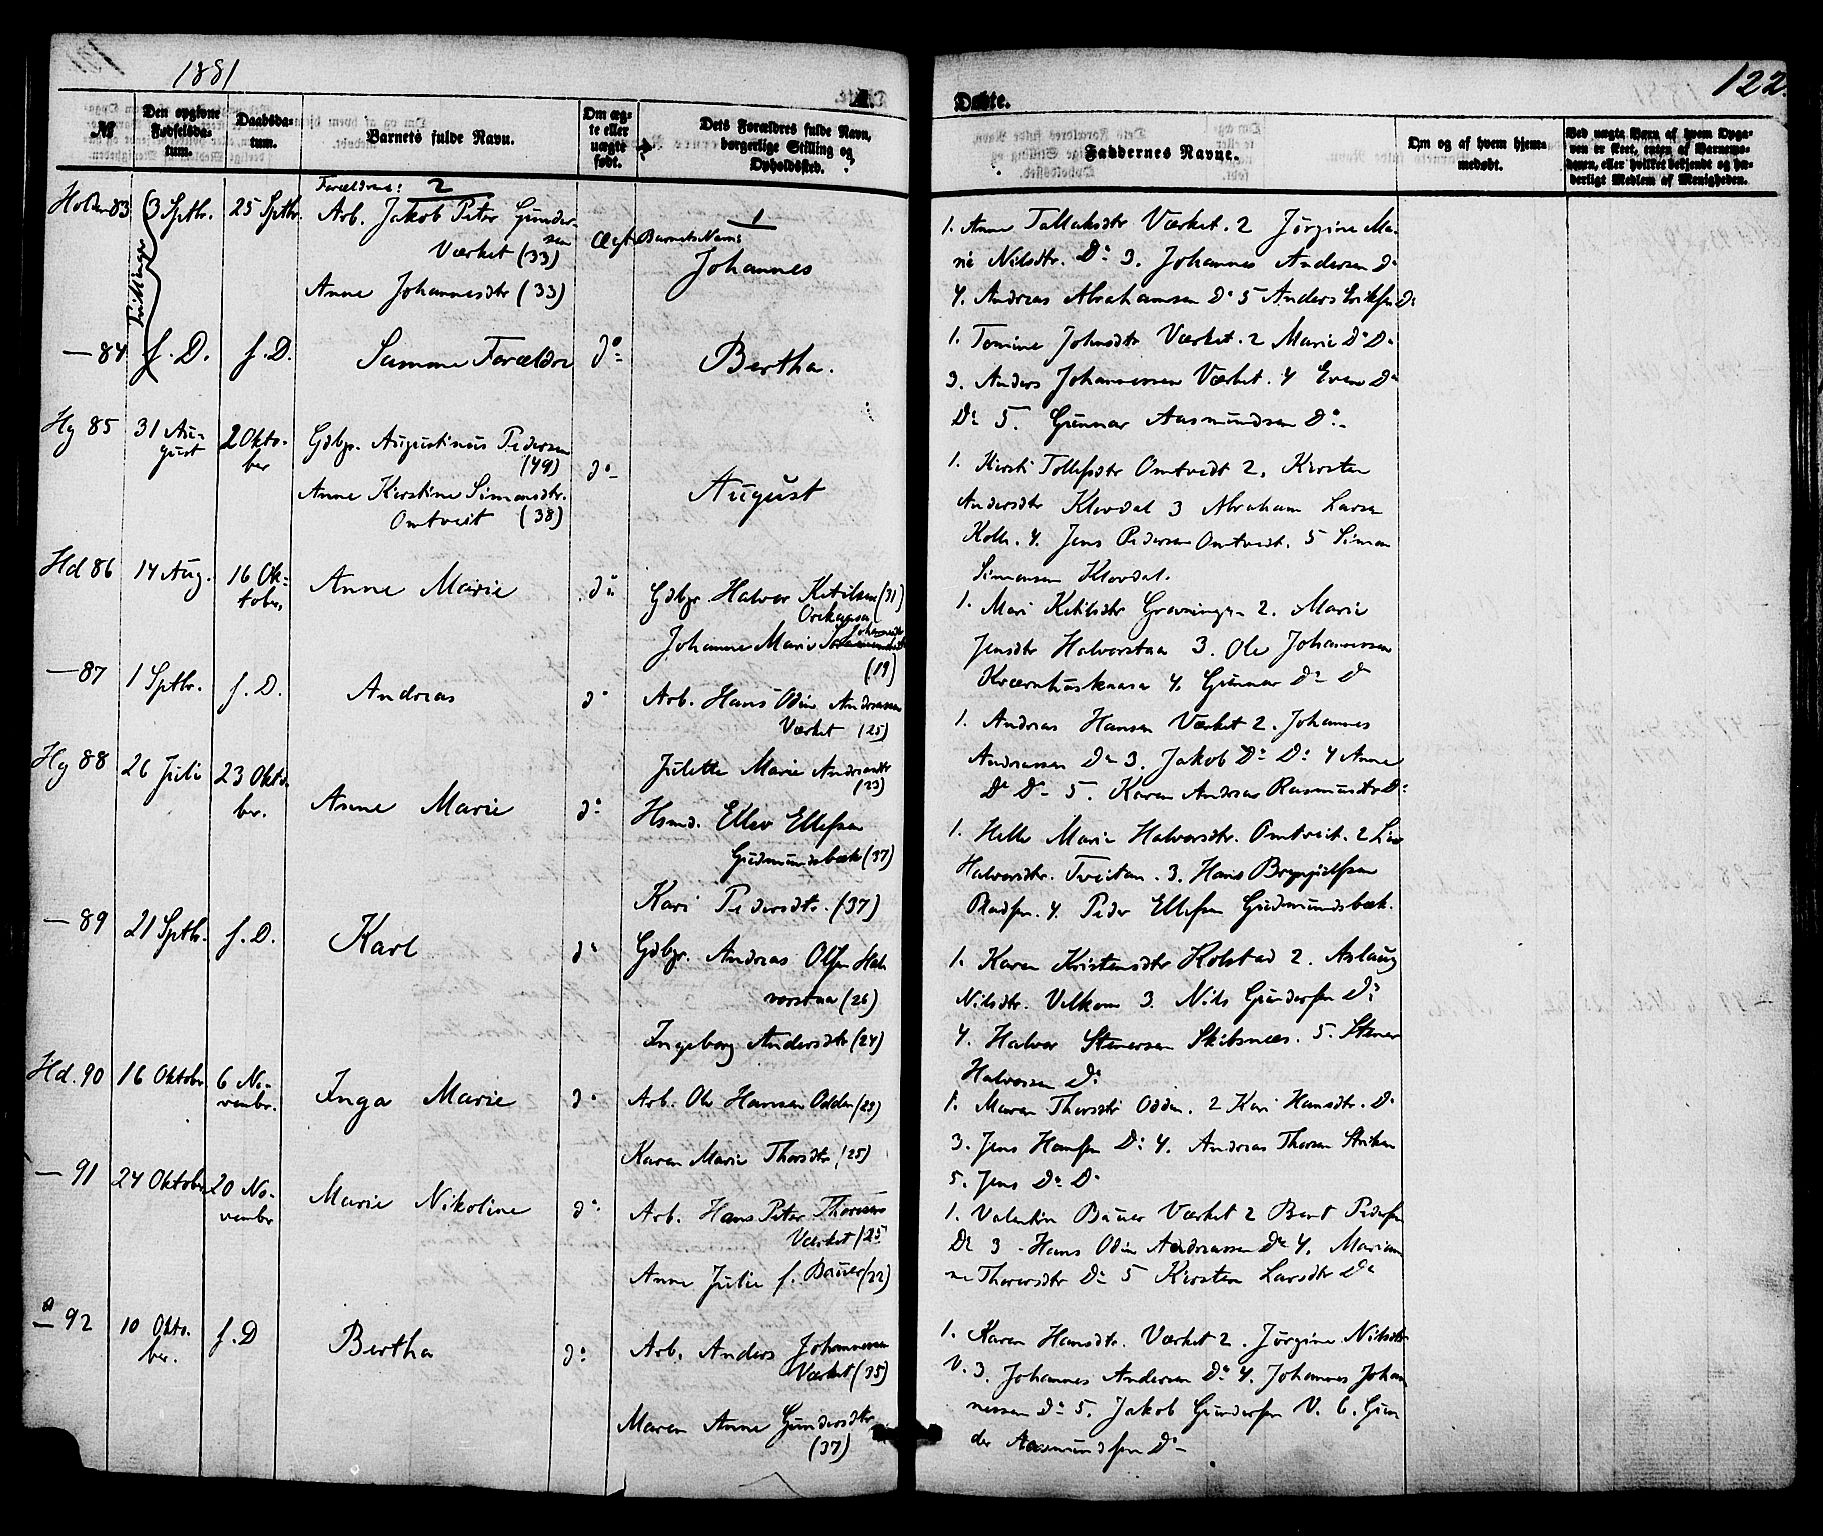 1881
122.
Døbte.
№
Den opgivne Fødselsdatum.
Daabsdatum.
Barnets fulde Navn.
Om ægte eller uægte født.
Dets Forældres fulde Navn, borgerlige Stilling og Opholdssted.
Faddernes Navne.
Om og af hvem hjemmedøbt.
Ved uægte Børn af hvem Opgaven er skeet, enten af Barnemoderen, eller hvilket bekjendt og hæderligt Medlem af Menigheden.
Holden 83
3 Septbr.
Tvillinger
25 Septbr.
Forældrene: 2
Arb. Jakob Peter Gunder-
sen
Værket (33)
Anne Johannesdtr (33)
Ægt
Barnets Navn: 1
Johannes
1. Anne Tollaksdtr Værket. 2 Jørgine Ma-
rie Nilsdtr. Do 3. Johannes Andersen do
4. Andreas Abrahamsen Do 5 Anders Eriksen Do
— 84
f. D.
f. D.
Samme Forældre
do
Bertha.
1. Tomine Johnsdtr Værket. 2 Marie Do Do
3. Anders Johannessen Værket. 4 Even Do
Do 5. Gunnar Aasmundsen Do
Hg 85
31 Au-
gust
2 Okto-
ber
Gdbgr. Augustinus Pedersen
(49)
Anne Kirstine Simonsdtr.
Omtveit (38)
do
August
1. Kirsti Tollefsdtr Omtvedt 2. Kirsten
Andersdtr Klovdal 3 Abraham Larsen
Kolle. 4. Jens Pedersen Omtvedt. 5 Simon
Simonsen Klovdal.
Hd 86
14 Aug.
16 Ok-
tober.
Anne Marie
do
Gdbgr. Halvor Ketilsen (31)
Johanne Marie Johannesdtr
(19)
1. Mari Ketilsdtr Gravningen 2. Marie
Jensdtr Halvorstaa 3. Ole Johannessen
Kværnhuskaasa 4. Gunnar Do Do
— 87
1 Septbr.
f. D.
Andreas
do
Arb. Hans Odin Andreassen
Værket (25)
Julette Marie Andreasdtr
(23)
1. Andreas Hansen Værket 2. Johannes
Andreassen Do 3. Jakob Do Do 4 Anne
Do Do 5. Karen Andrea Rasmusdtr Do
Hg 88
26 Juli
23 Okto-
ber.
Anne Marie
do
Hsmd. Ellev Ellefsen
Gudmundsbæk (37)
Kari Pedersdtr. (37)
1. Helle Marie Halvorsdtr. Omtveit. 2 Liv
Halvorsdtr. Tveitan. 3. Hans Brynjulfsen
4. Peder Ellefsen Gudmundsbæk.
— 89
21 Septbr.
f. D.
Karl
do
Gdbgr. Andreas Olsen Hal-
vorstaa (26)
Ingeborg Andersdtr (24)
1. Karen Kristensdtr Kolstad 2. Aslaug
Nilsdtr. Velkom 3. Nils Gundersen Do
4. Halvor Stenersen Skibsnæs. 5. Stener
Halvorsen Do
Hd. 90
16 Oktobr
6 No-
venbr.
Inga Marie
do
Arb. Ole Hansen Odden (23)
Karen Marie Thorsdtr (25)
1. Maren Thorsdtr Odden. 2 Kari Hansdtr. Do
3. Jens Hansen Do 4. Andreas Thorsen Striken
5. Jens Do Do
— 91
24 Oktobr
20 No-
venbr
Marie Nikoline
do
Arb. Hans Peter Thoresen
Værket (25
Anne Julie f. Bauer (22)
1. Valentin Bauer Værket 2 Bent Pedersen
Do 3. Hans Odin Andreassen Do 4. Marian-
ne Thorersdtr Do 5 Kirsten Larsdtr Do
— 92
10 Okto-
ber.
f. D
Bertha
do
Arb. Anders Johannessen
Værket (35)
Maren Anne Gundersdtr
(37)
1. Karen Hansdtr. Værket 2. Jørgine Nilsdtr
V. 3. Johannes Andersen Do 4. Johannes Johan-
nessen Do 5. Jakob Gundersen V. 6. Gun-
der Aasmundsen Do